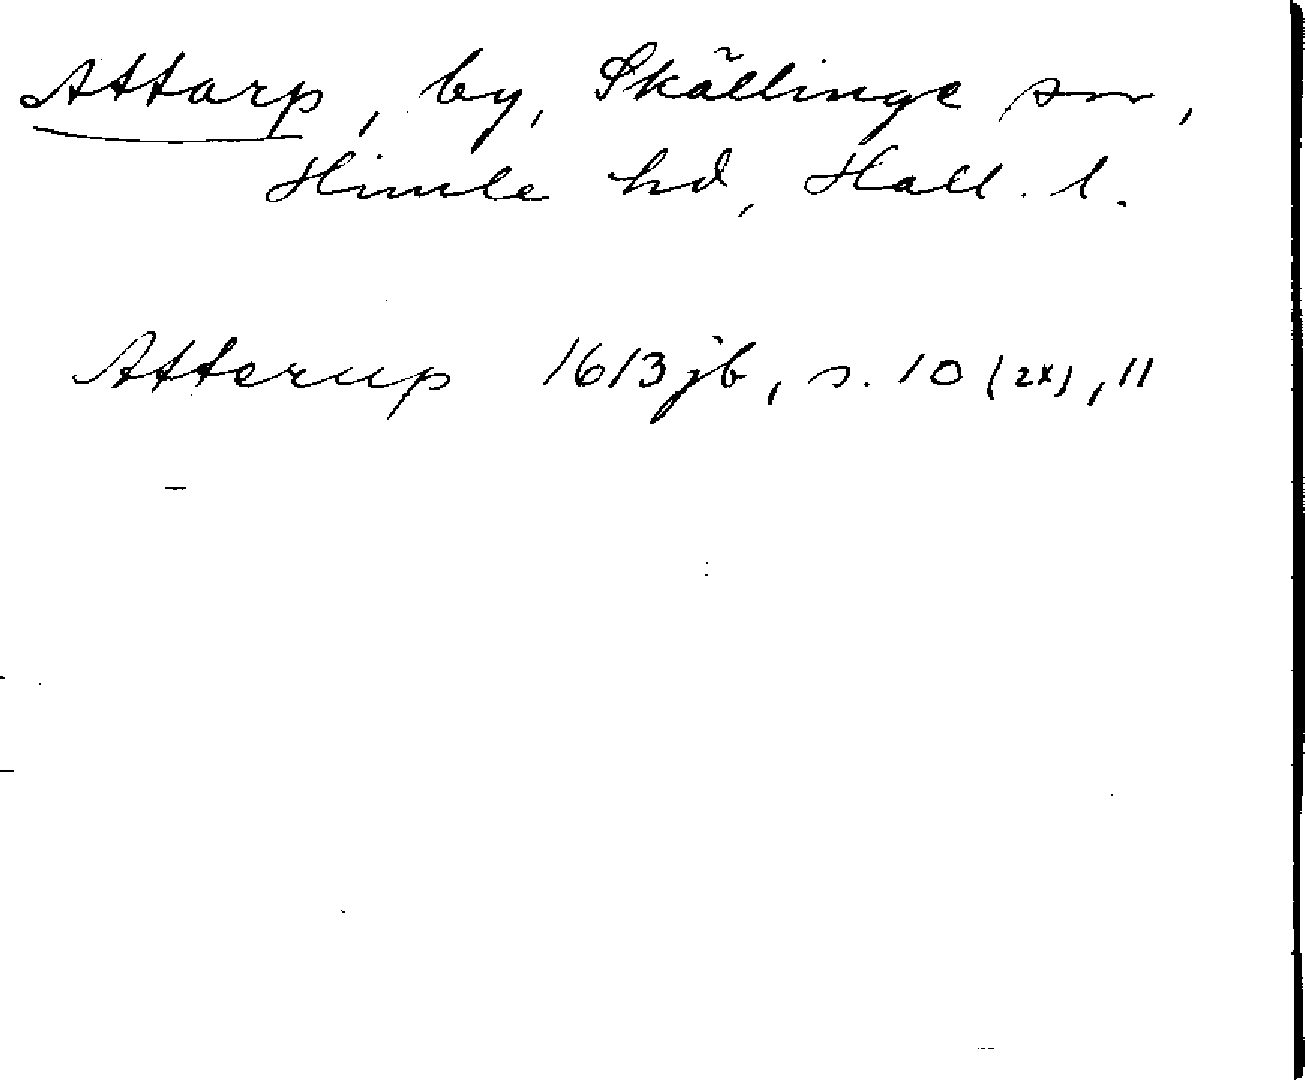 Attarp, by, Skällinge sn,
Himle hd, Hall. l.
Atterup 1613 jb, s. 10 (2x), 11